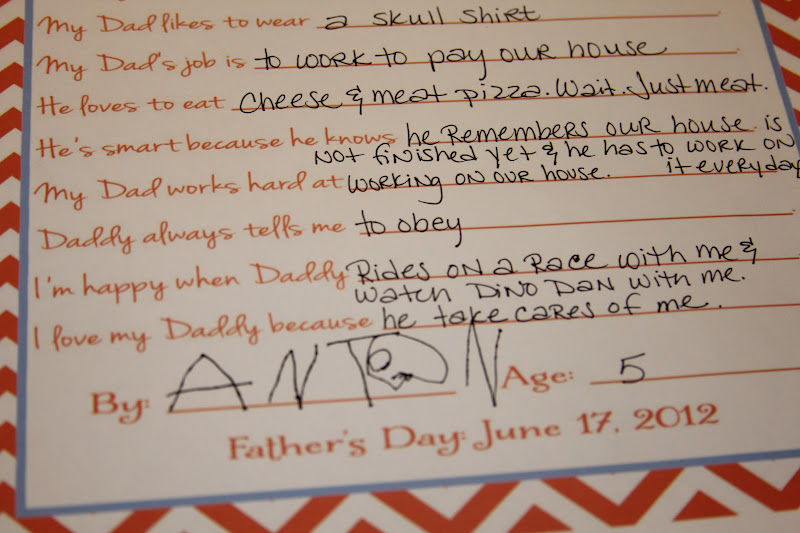 My Dad likes to wear a skull shirt
My Dad's job is to work to pay our house
He loves to eat cheese & meat pizza. Wait. Just meat.
He's smart because he knows he Remembers our house is
not finished yet & he has to work on
it everyday
My Dad works hard at working on our house.
Daddy always tells me to obey
I'm happy when Daddy Rides on a Race with me &
watch Dino Dan with me.
I love my Daddy because he take cares of me.
By: ANTON Age: 5
Father's Day: June 17, 2012